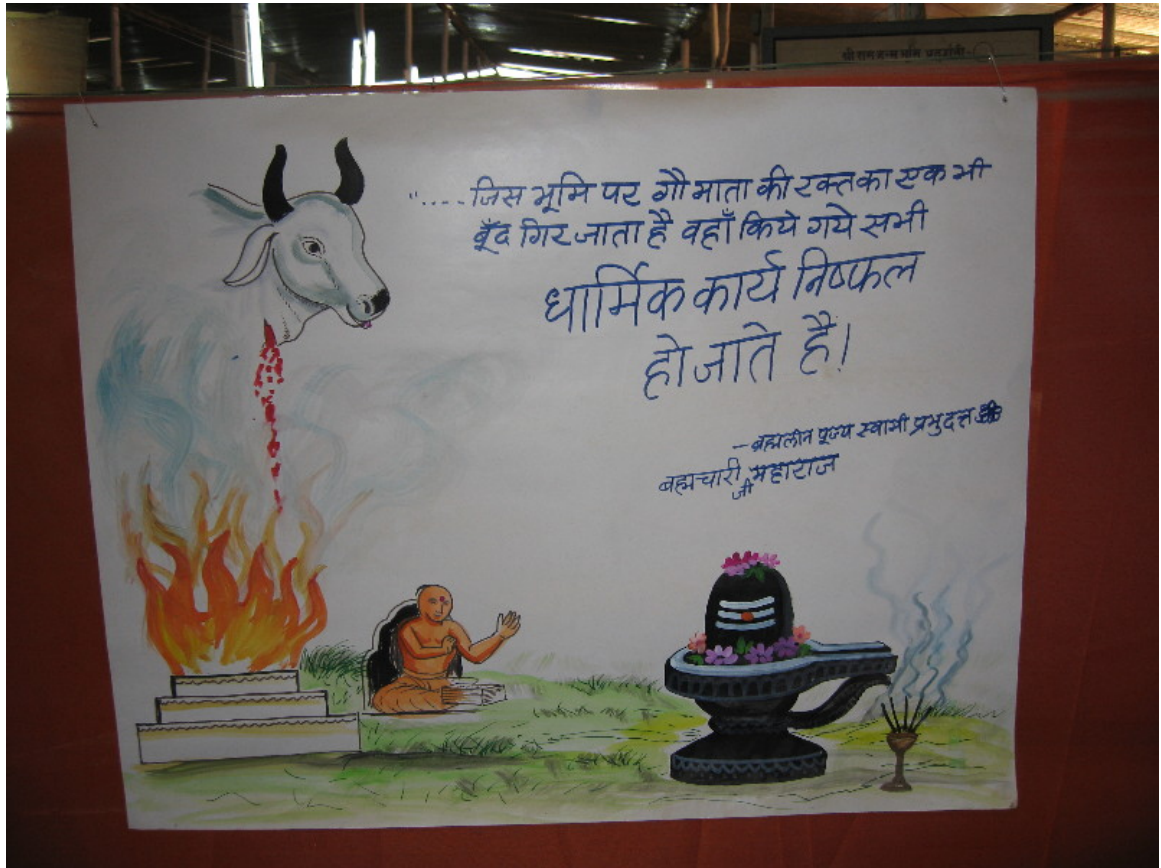 "....जिस भूमि पर गौ माता की रक्त का एक भी
बूँद गिर जाता है वहाँ किये गये सभी
धार्मिक कार्य निष्फल
हो जाते है!
-ब्रह्मलीन पूज्य स्वामी प्रभुदत्त
ब्रह्मचारी जी महाराज